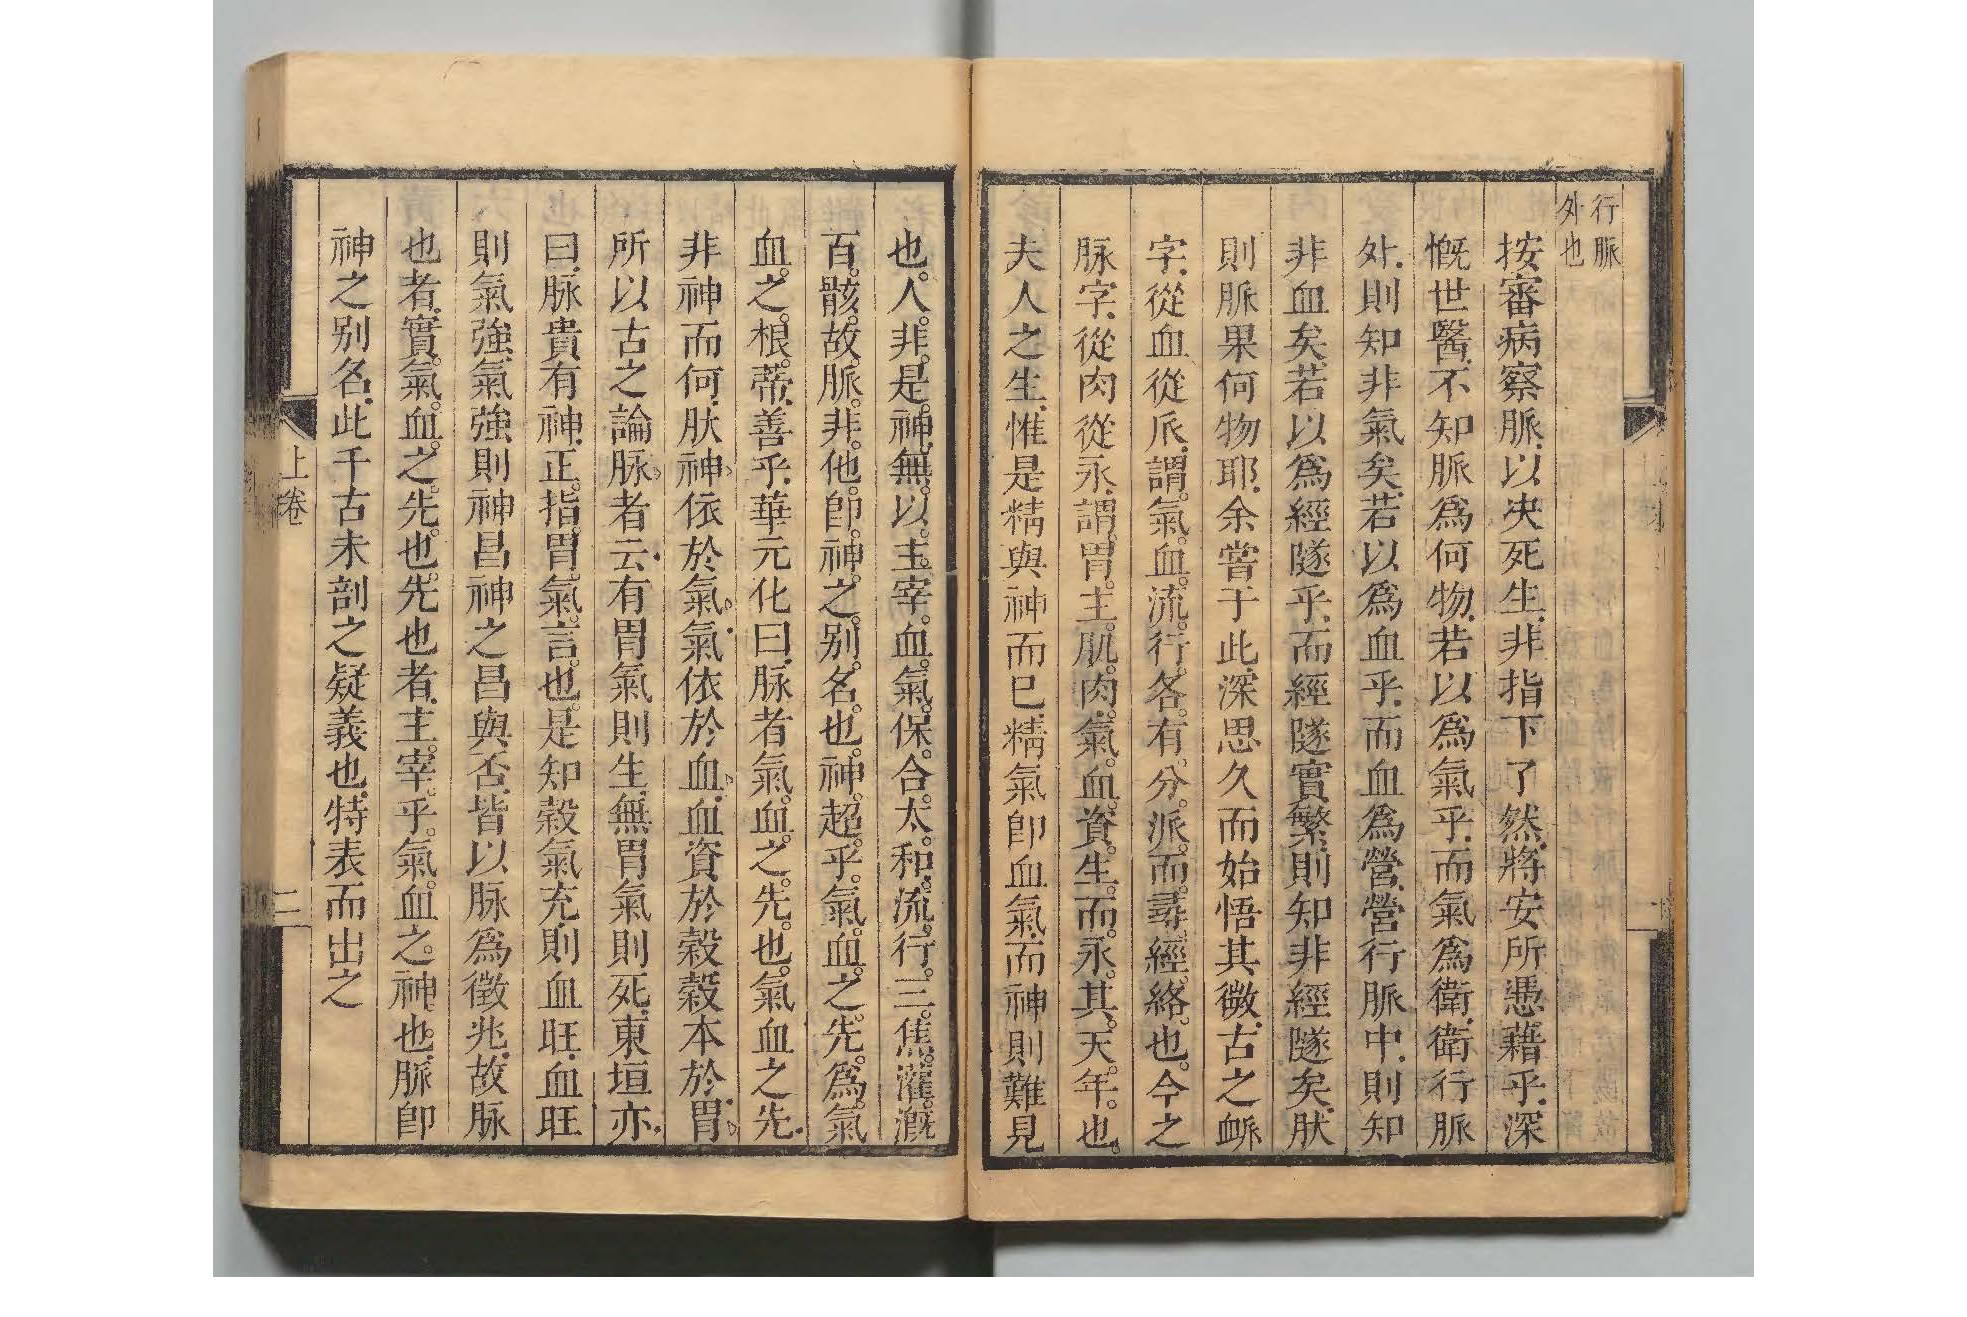 行脈
外也
按審病察脈以决死生非指下了然將安所憑藉乎深
慨世醫不知脈爲何物若以爲氣乎而氣爲衛衛行脈
外則知非氣矣若以爲血乎而血爲營營行脈中則知
非血矣若以爲經隧乎而經隧實繁則知非經隧矣肰
則脈果何物耶余嘗于此深思久而始悟其微古之衇
字從血從𠂢謂氣血流行各有分派而尋經絡也今之
脉字從肉從永謂胃主肌肉氣血資生而永其天年也
夫人之生惟是精與神而已精氣卽血氣而神則難見
也人非是神無以主宰血氣保合太和流行三焦灌溉
百骸故脈非他卽神之别名也神超乎氣血之先爲氣
血之根蒂善乎華元化曰脉者氣血之先也氣血之先
非神而何肰神依於氣氣依於血血資於穀穀本於胃
所以古之論脉者云有胃氣則生無胃氣則死東垣亦
曰脈貴有神正指胃氣言也是知穀氣充則血旺血旺
則氣強氣強則神昌神之昌與否皆以脉爲徵兆故脉
也者實氣血之先也先也者主宰乎氣血之神也脈卽
神之别名此千古未剖之疑義也特表而出之
上卷
二